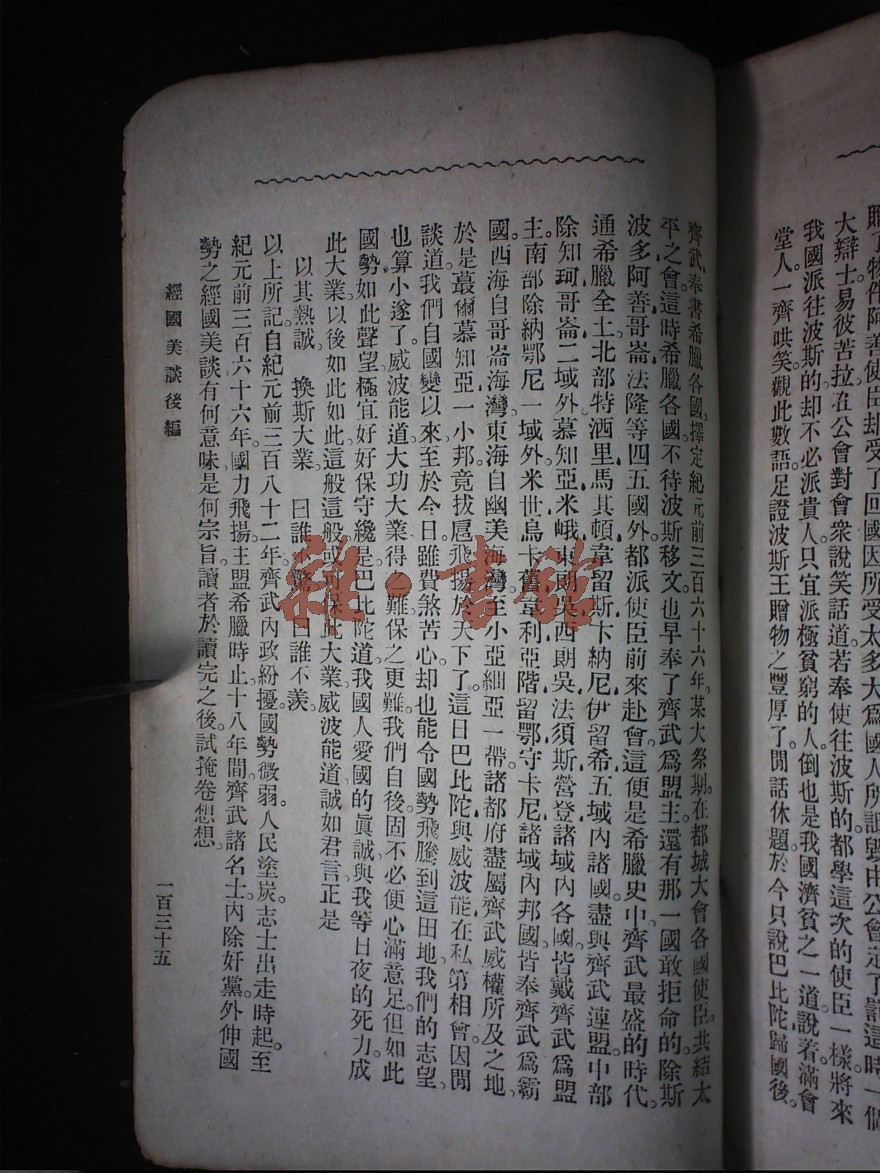 贈了物件阿善使臣却受了回國因所受太多大爲國人所詆毀由公會定了罰這時一個
大辯士易彼苦拉在公會對會衆說笑話道若奉使往波斯的都學這次的使臣一樣將來
我國派往波斯的却不必派貴人只宜派極貧窮的人倒也是我國濟貧之一道說着滿會
堂人一齊哄笑觀此數語足證波斯王贈物之豐厚了閒話休題於今只說巴比陀歸國後
齊武奉書希臘各國擇定紀元前三百六十六年某大祭期在都城大會各國使臣共結太
平之會這時希臘各國不待波斯移文也早奉了齊武爲盟主還有那一國敢拒命的除斯
波多阿善哥崙法隆等四五國外都派使臣前來赴會這便是希臘史中齊武最盛的時代
通希臘全土北部特洒里馬其頓韋留斯卡納尼伊留希五域內諸國盡與齊武連盟中部
除知珂哥崙二域外慕知亞米峨東則吳西則吳法須斯營登諸域內各國皆戴齊武爲盟
主南部除納鄂尼一域外米世烏卡舊韋利亞階留鄂守卡尼諸域內邦國皆奉齊武爲霸
國西海自哥崙海灣東海自幽美海灣至小亞細亞一帶諸都府盡屬齊武威權所及之地
於是蕞爾慕知亞一小邦竟拔扈飛揚於天下了這日巴比陀與威波能在私第相會因閒
談道我們自國變以來至於今日雖費煞苦心却也能令國勢飛騰到這田地我們的志望
也算小遂了威波能道大功大業得之難保之更難我們自後固不必便心滿意足但如此
國勢如此聲望極宜好好保守纔是巴比陀道我國人愛國的眞誠與我等日夜的死力成
此大業以後如此如此這般這般或可保此大業威波能道誠如君言正是
以其熱誠 換斯大業 曰誰不驚 曰誰不羨
以上所記自紀元前三百八十二年齊武內政紛擾國勢微弱人民塗炭志士出走時起至
紀元前三百六十六年國力飛揚主盟希臘時止十八年間齊武諸名士內除奸黨外伸國
勢之經國美談有何意味是何宗旨讀者於讀完之後試掩卷想想
經國美談後編
一百三十五
雜·書館